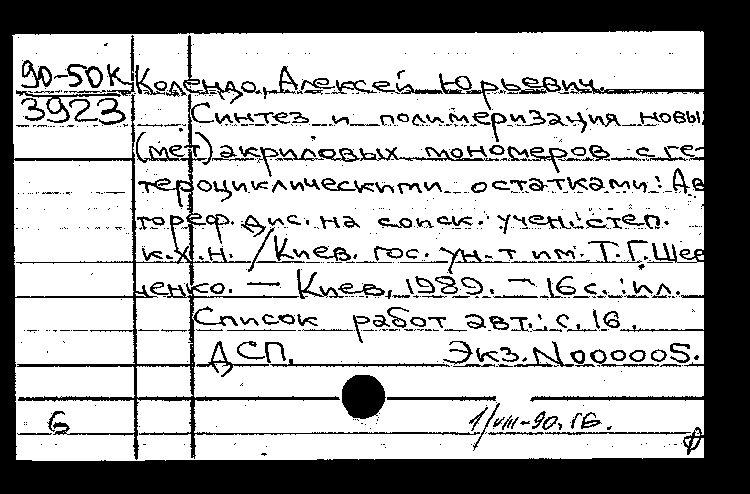 90-50К Колендо, Алексей Юрьевич.
3923 Синтез и полимеризация новы
(мет)акриловых мономеров с ге-
тероциклическими остатками: Ав
тореф. дис. на соиск. учен. степ.
к.х.н. / Киев. гос. ун-т им. Т.Г. Шев
ченко. — Киев, 1989. — 16 с.: ил.
Список работ авт.: с. 16.
ДСП. Экз. N 000005.
6 1/VIII-90. ГБ.